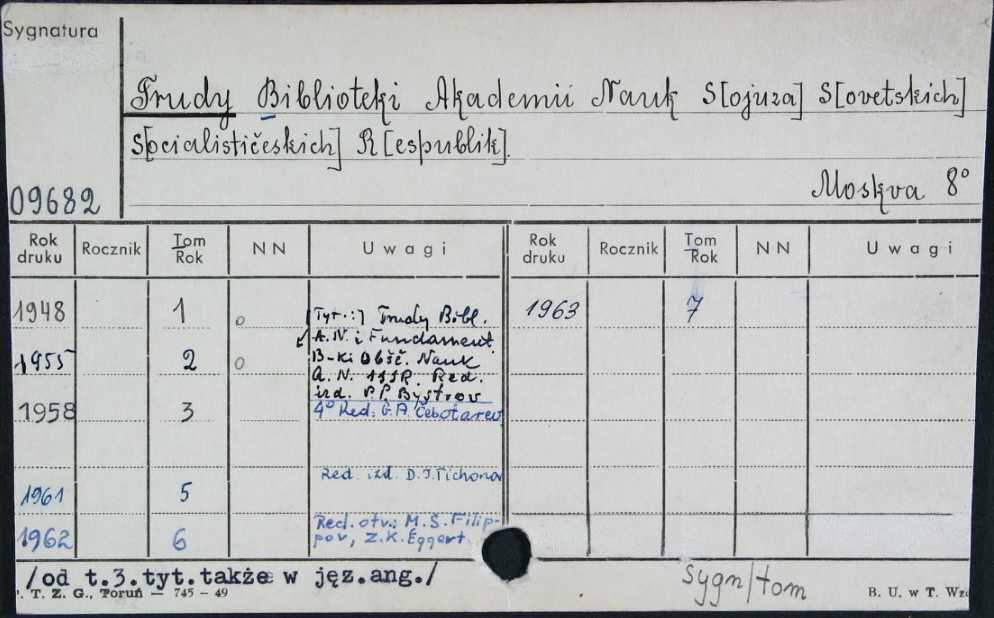 Sygnatura
Trudy Biblioteki Akademii Nauk S[ojuza] S[ovetskich]
S[ocialističeskich] R[espublik].
09682
Moskva 8°
Rok druku Rocznik Tom Rok N N Uwagi Rok druku Rocznik Tom Rok N N Uwagi
1948 1 o [Tyt.:] Trudy Bibl. 1963 7
A.N. i Fundament.
1955 2 o B-ki Obšč. Nauk
A. N. SSSR. Red.
izd. P.P. Bystrov
1958 3 4° Red. G.A. Čebotarev
Red. izd. D.J. Tichonov
1961 5
Red. otv.: M.S. Filip-
1962 6 pov, Z.K. Eggert.
/od t.3.tyt.także w jęz.ang./
sygn/tom
. T. Z. G., Toruń — 745 – 49
B. U. w T.